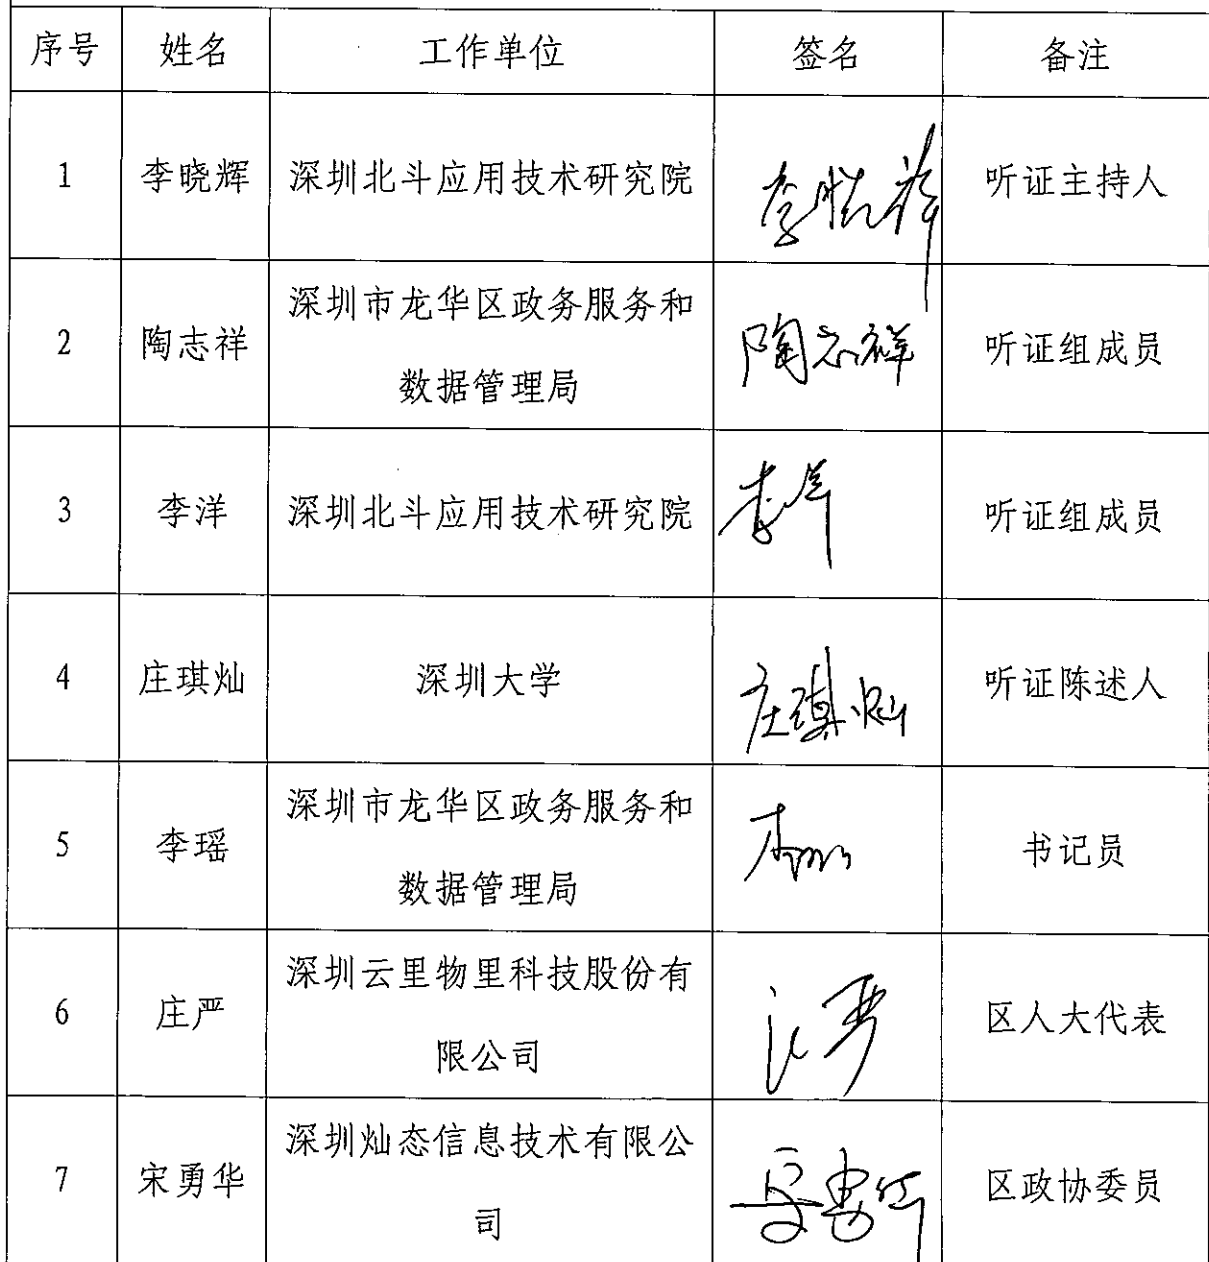 序号 姓名 工作单位 签名 备注
1 李晓辉 深圳北斗应用技术研究院 李晓辉 听证主持人
2 陶志祥 深圳市龙华区政务服务和 陶志祥 听证组成员
数据管理局
3 李洋 深圳北斗应用技术研究院 李洋 听证组成员
4 庄琪灿 深圳大学 庄琪灿 听证陈述人
5 李瑶 深圳市龙华区政务服务和 书记员
数据管理局
6 庄严 深圳云里物里科技股份有 庄严 区人大代表
限公司
7 宋勇华 深圳灿态信息技术有限公 区政协委员
司